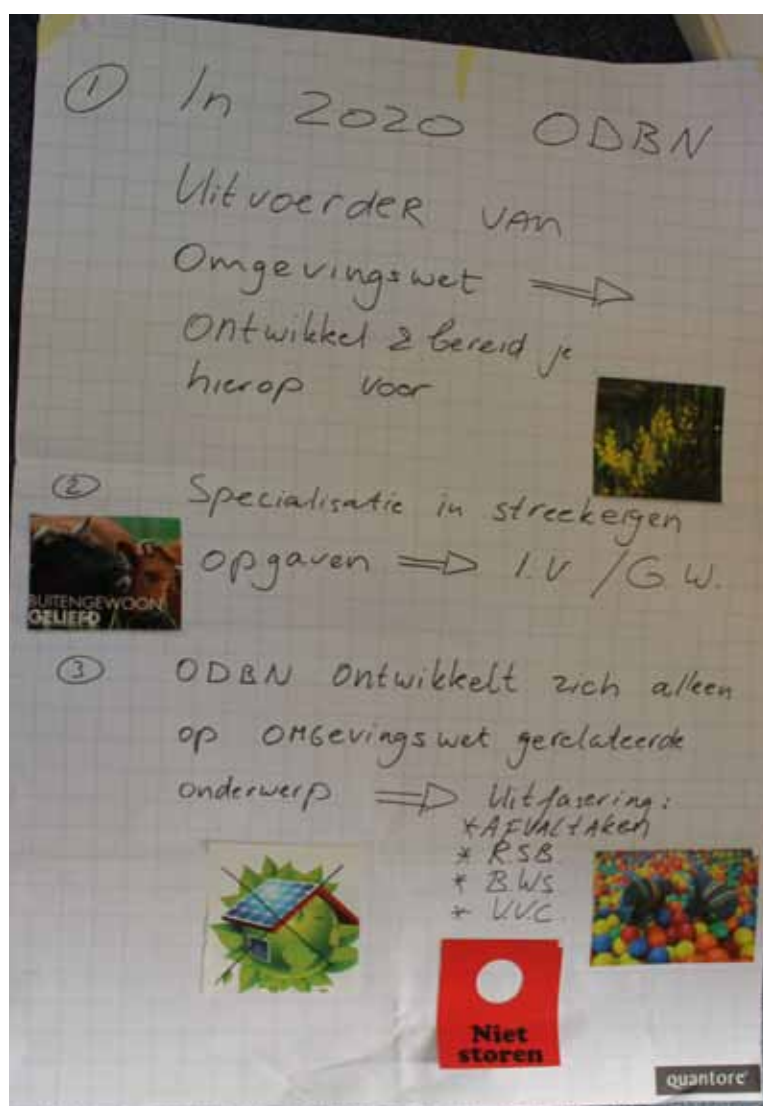 ① In 2020 ODBN
Uitvoerder van
Omgevingswet ⇒
Ontwikkel & bereid je
hierop voor
② Specialisatie in streekeigen
opgaven ⇒ I.V / G.W.
BUITENGEWOON
GELIEFD
③ ODBN ontwikkelt zich alleen
op omgevingswet gerelateerde
onderwerp ⇒ Uitfasering:
* AFVALtAken
* RSB
* BWS
* VVC
Niet
storen
quantore